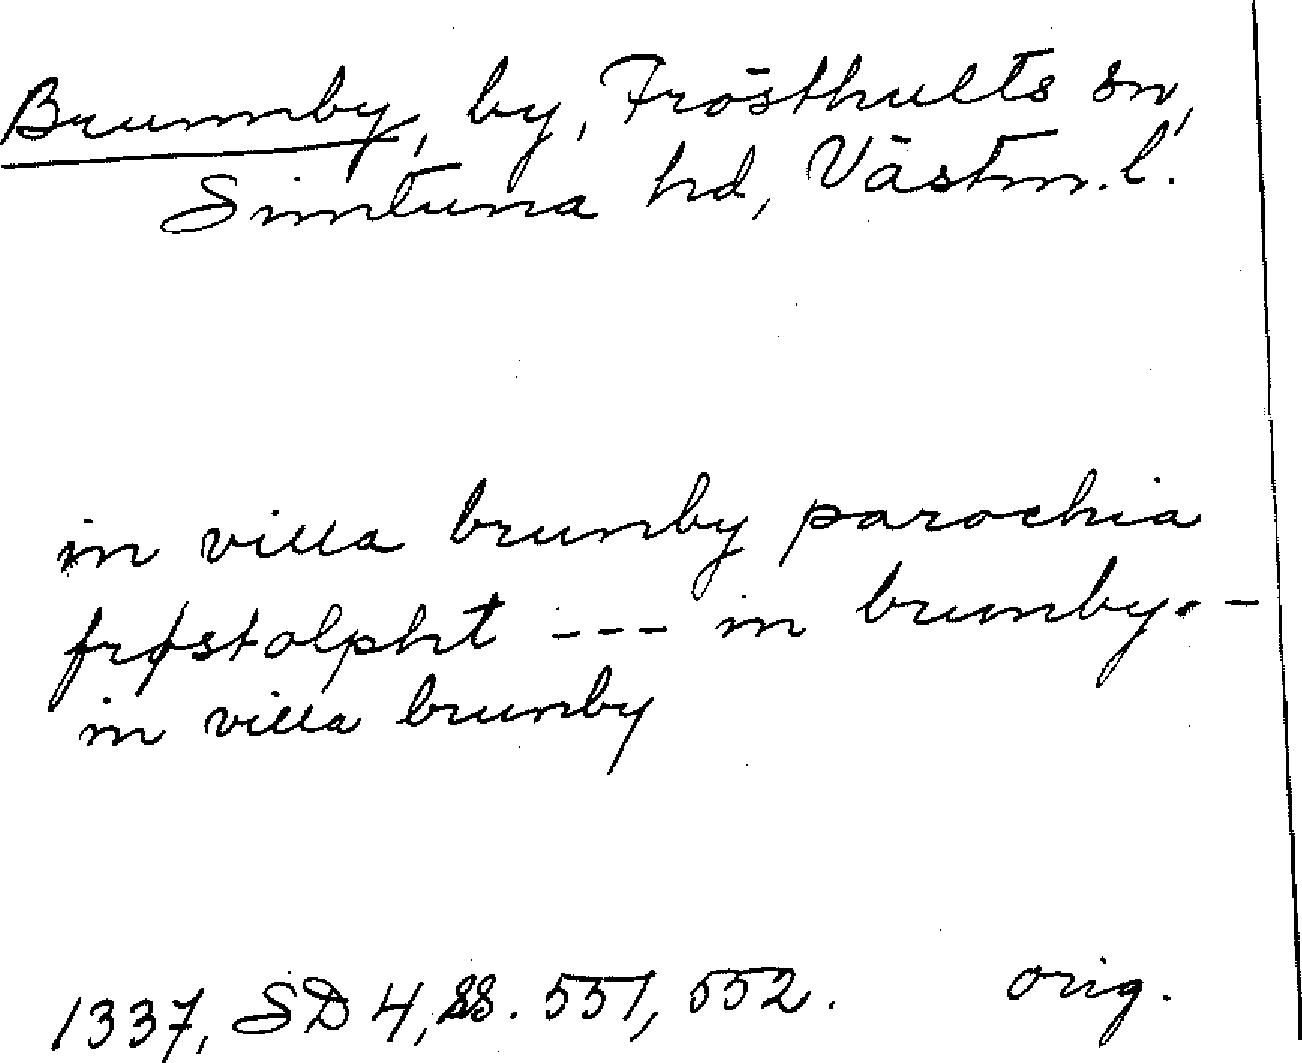 Brunnby, by, Frösthults sn,
Simtuna hd, Västm. l.
in villa brunby parochia
frøstolpht --- in brunby --
in villa brunby
1337, SD 4, ss. 551, 552. orig.